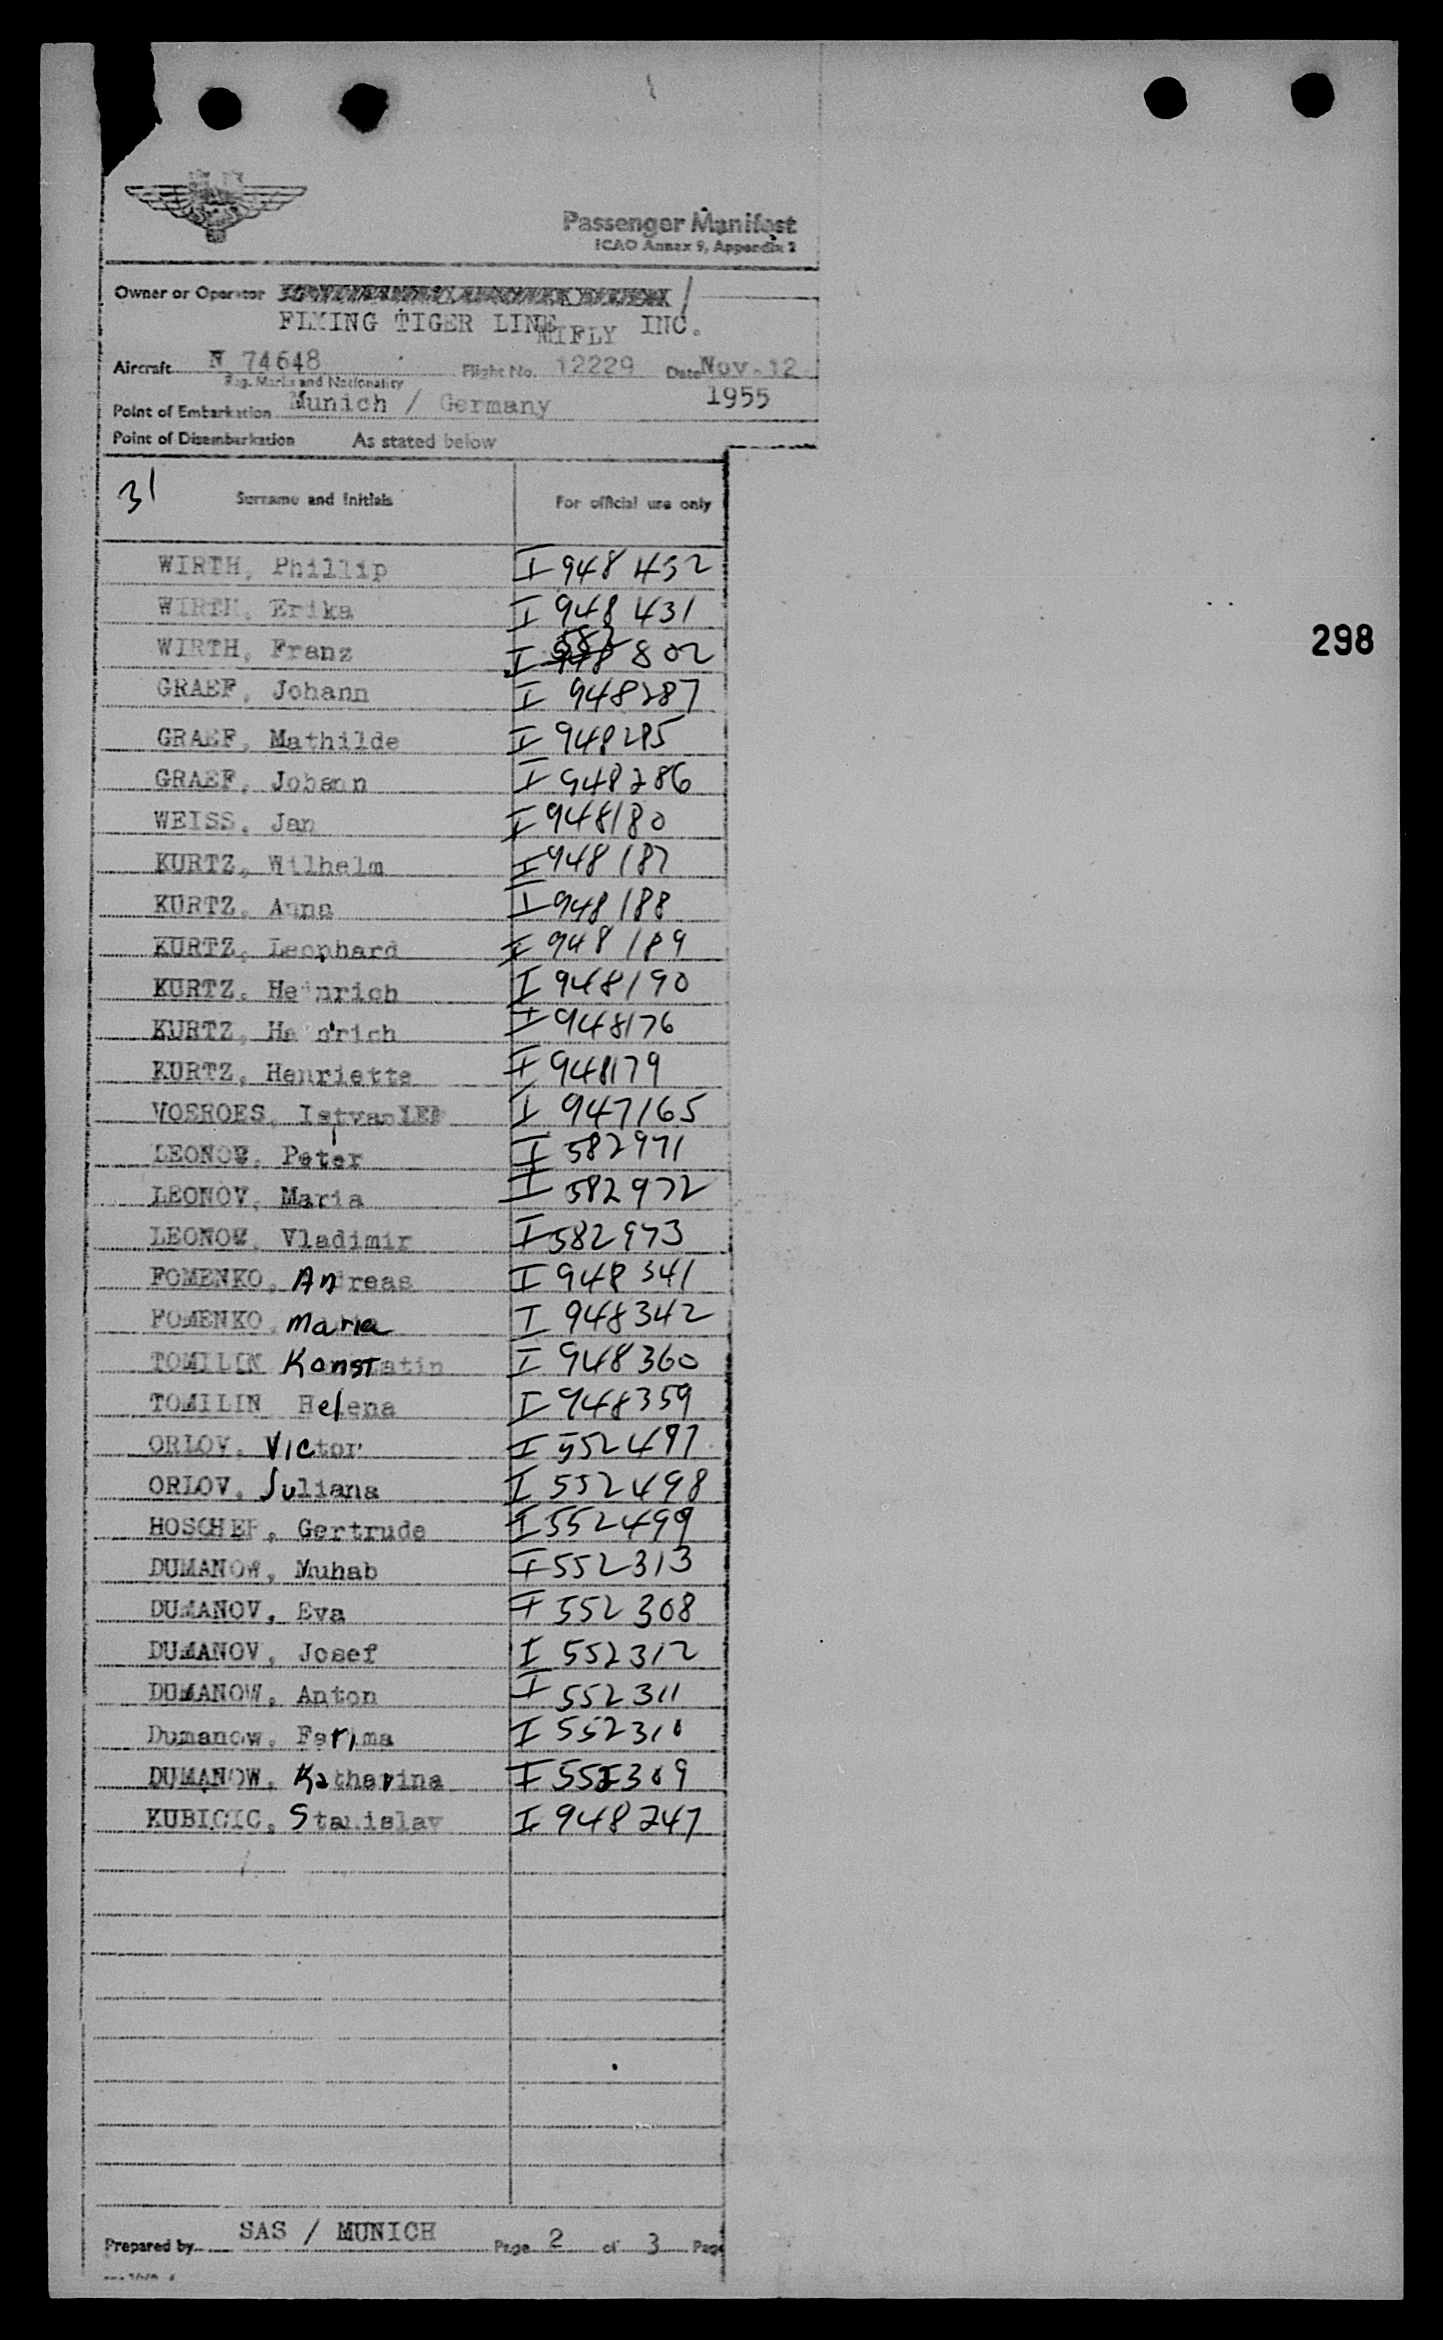 Passenger Manifest
ICAO Annex 9, Appendix 2
Owner or Operator
FLYING TIGER LINE INC.
MIFLY
Aircraft N 74648 Flight No. 12229 Date Nov. 12
Reg. Marks and Nationality
1955
Point of Embarkation Munich / Germany
Point of Disembarkation As stated below
31 Surname and Initials For official use only
WIRTH, Phillip I 948 432
WIRTH, Erika I 948 431
298
WIRTH, Franz I 582 802
GRAEF, Johann I 948287
GRAEF, Mathilde I 948285
GRAEF, Johann I 948286
WEISS, Jan I 948180
KURTZ, Wilhelm I 948 187
KURTZ, Anna I 948 188
KURTZ, Leonhard I 948 189
KURTZ, Heinrich I 948190
KURTZ, Heinrich I 948176
KURTZ, Henriette I 948179
VOEROES, Istvan I 947165
LEONOW, Peter I 582971
LEONOV, Maria I 582972
LEONOW, Vladimir I 582973
FOMENKO, Andreas I 948 341
FOMENKO, Maria I 948342
TOMILIN Konstatin I 948360
TOMILIN Helena I 948359
ORLOV, Victor I 552497
ORLOV, Juliana I 552498
HOSCHEF, Gertrude I 552499
DUMANOW, Muhab I 552313
DUMANOV, Eva I 552308
DUMANOV, Josef I 552312
DUMANOW, Anton I 552311
Dumanow, Ferima I 552310
DUMANOW, Katharina I 552309
KUBICIC, Stanislav I 948247
Prepared by SAS / MUNICH Page 2 of 3 Page